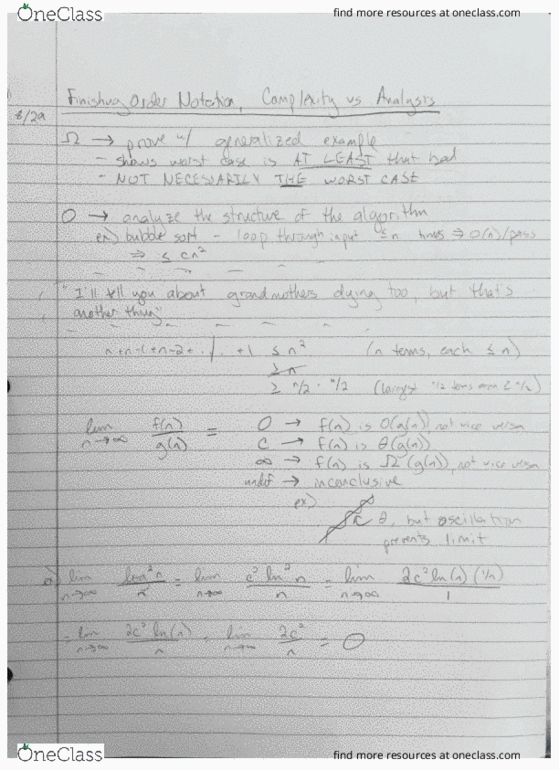 OneClass
find more resources at oneclass.com
Finishing Order Notation, Complexity vs Analysis
8/29
Ω → prove w/ generalized example
- shows worst case is AT LEAST that bad
- NOT NECESSARILY THE WORST CASE
O → analyze the structure of the algorithm
ex) bubble sort - loop through input ≤n times ⇒ O(n)/pass
⇒ ≤ cn²
"I'll tell you about grandmothers dying too, but that's
another thing"
n+n-1+n-2+...+1 ≤ n²
(n terms, each ≤ n)
≥ n
≥ n/2 · n/2
(largest n/2 terms are ≥ n/2)
lim n→∞ f(n)/g(n) = 0 → f(n) is O(g(n)), not vice versa
c → f(n) is θ(g(n))
∞ → f(n) is Ω(g(n)), not vice versa
undef → inconclusive
ex)
θ, but oscillation
prevents limit
lim n→∞ log²n/n = lim n→∞ c² ln² n/n = lim n→∞ 2c² ln(n) (1/n)/1
= lim n→∞ 2c² ln(n)/n = lim n→∞ 2c²/n = 0
OneClass
find more resources at oneclass.com